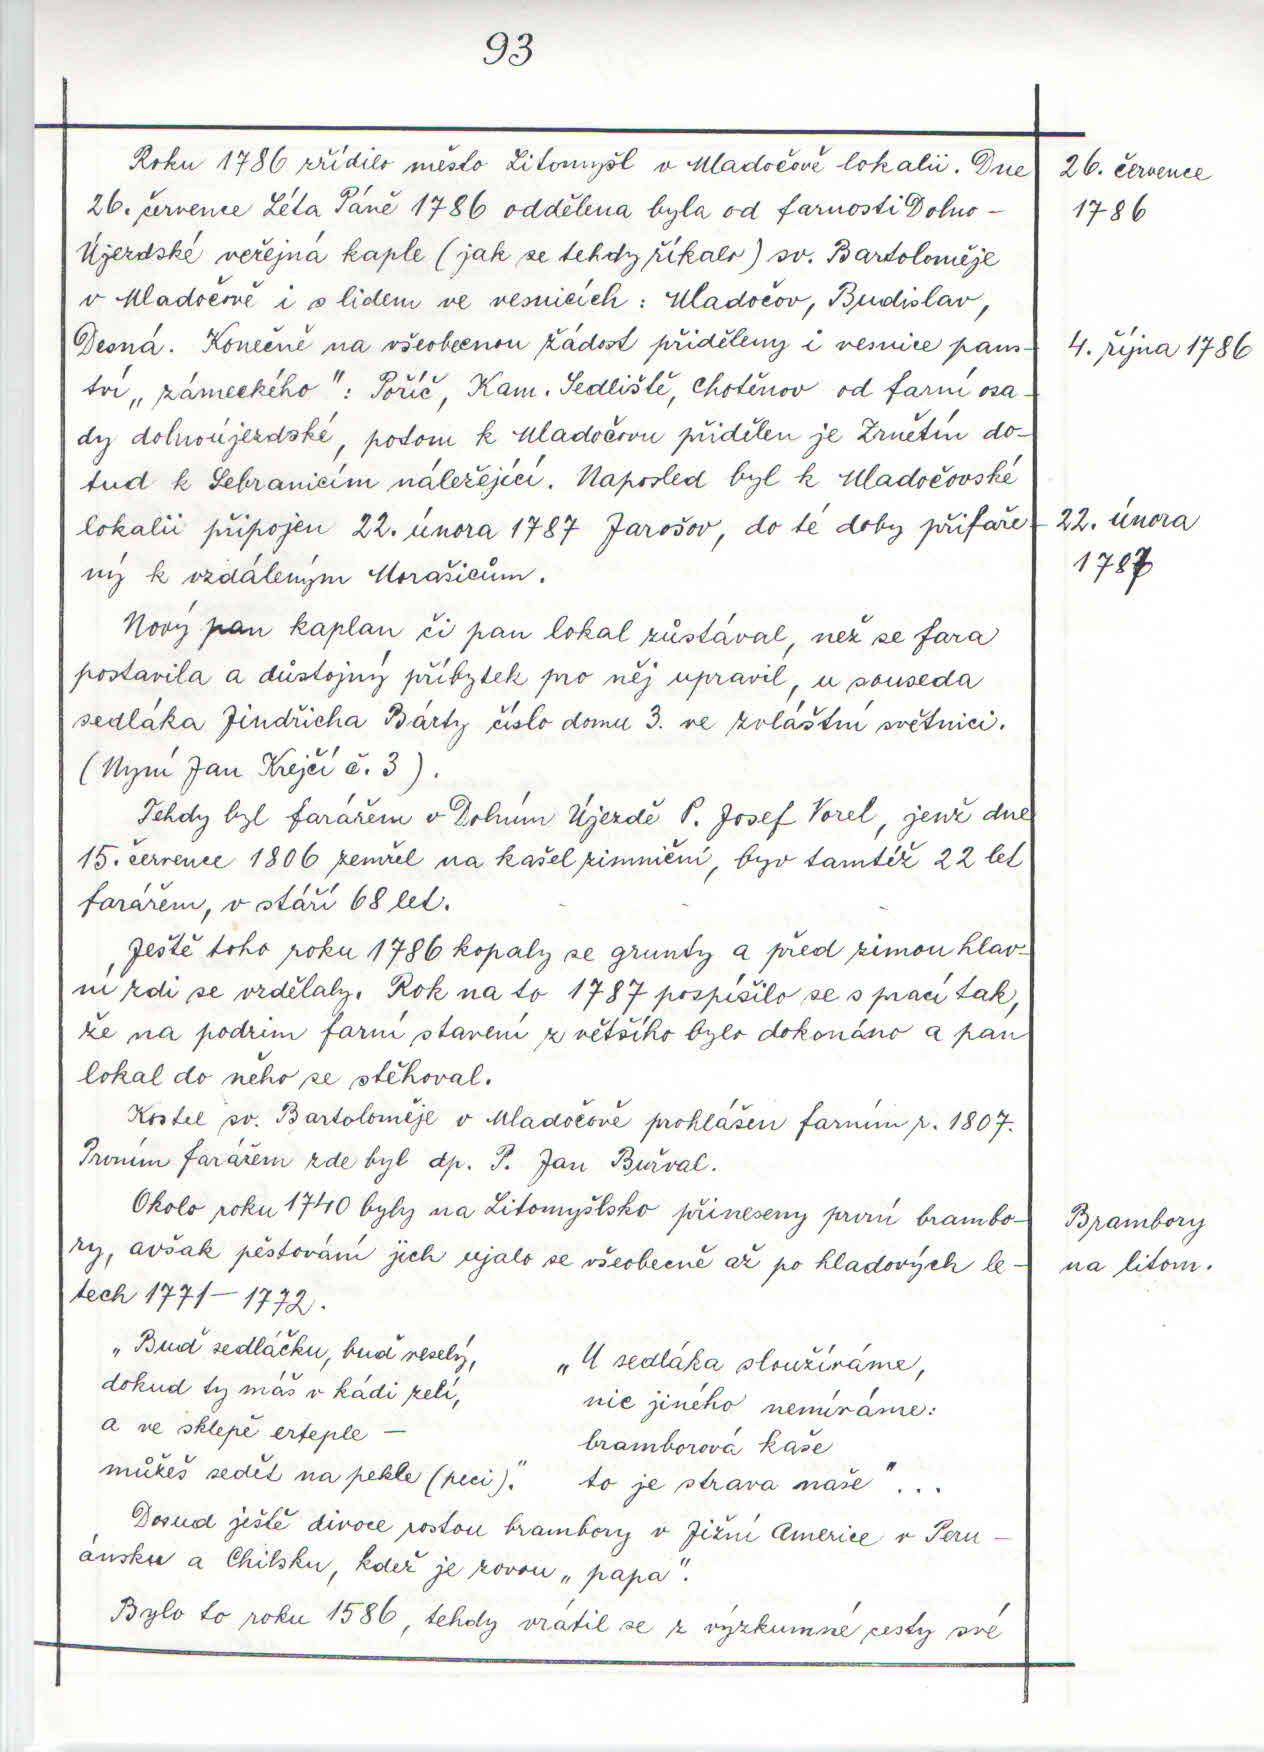 93
Roku 1786 zřídilo město Litomyšl v Mladočově lokalii. Dne
26. července
26. července Léta Páně 1786 oddělena byla od farnosti Dolno-
1786
Újezdské veřejná kaple (jak se tehdy říkalo) sv. Bartoloměje
v Mladočově i s lidem ve vesnicích: Mladočov, Budislav,
Desná. Konečně na všeobecnou žádost přiděleny i vesnice pans-
4. října 1786
tví „zámeckého": Poříč, Kam. Sedliště, Chotěnov od farní osa-
dy dolnoújezdské, potom k Mladočovu přidělen je Zrnětín do-
tud k Sebranicím náležející. Naposled byl k Mladočovské
lokalii připojen 22. února 1787 Jarošov, do té doby přifaře-
22. února
ný k vzdáleným Morašicům.
1787
Nový pan kaplan či pan lokal zůstával, než se fara
postavila a důstojný příbytek pro něj upravil, u souseda
sedláka Jindřicha Bárty číslo domu 3. ve zvláštní světnici.
(Nyní Jan Krejčí č. 3).
Tehdy byl farářem v Dolním Újezdě P. Josef Vorel, jenž dne
15. července 1806 zemřel na kašel zimniční, byv tamtéž 22 let
farářem, v stáří 68 let.
Ještě toho roku 1786 kopaly se grunty a před zimou hlav-
ní zdi se vzdělaly. Rok na to 1787 pospíšilo se s prací tak,
že na podzim farní stavení z většího bylo dokonáno a pan
lokal do něho se stěhoval.
Kostel sv. Bartoloměje v Mladočově prohlášen farním r. 1807.
Prvním farářem zde byl dp. P. Jan Buřval.
Okolo roku 1740 byly na Litomyšlsko přineseny první brambo-
Brambory
ry, avšak pěstování jich ujalo se všeobecně až po hladových le-
na litom.
tech 1771 - 1772.
„Buď sedláčku, buď veselý,
dokud ty máš v kádi zelí,
a ve sklepě erteple -
můžeš sedět na pekle (peci)."
„U sedláka sloužíváme,
nic jiného nemíváme:
bramborová kaše
to je strava naše"...
Dosud ještě divoce rostou brambory v Jižní Americe v Peru-
ánsku a Chilsku, kdež je zovou „papa".
Bylo to roku 1586, tehdy vrátil se z výzkumné cesty své